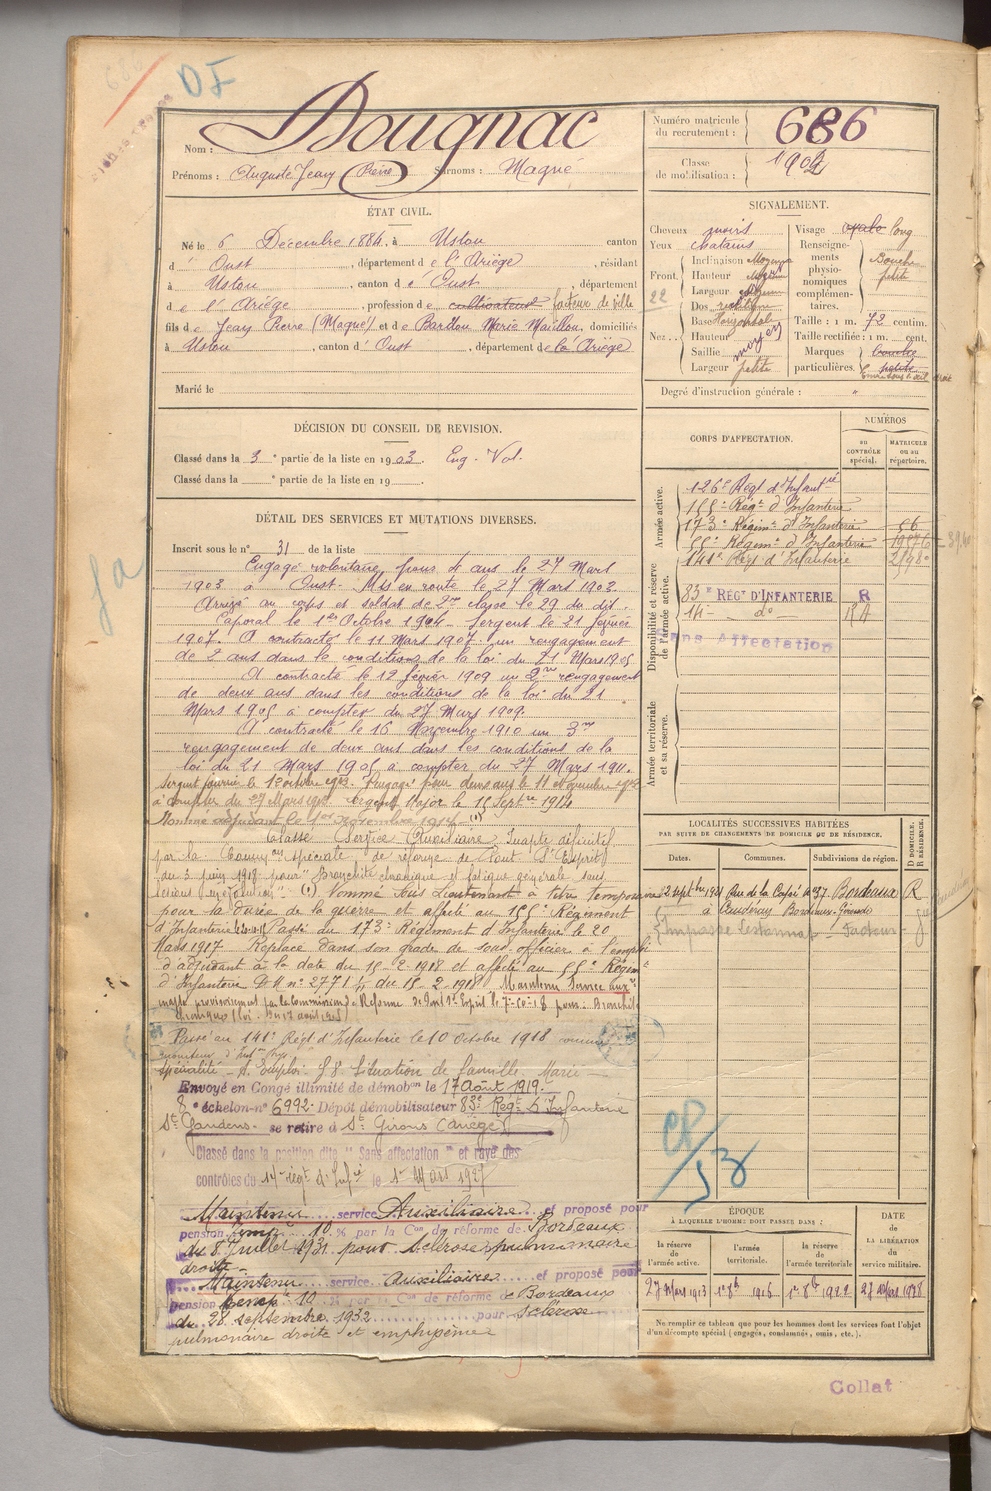 DF
Nom : Dougnac
Prénoms : Auguste Jean Pierre Surnoms : Magné
Numéro matricule du recrutement : 686
Classe de mobilisation : 1902
ÉTAT CIVIL.
Né le 6 Décembre 1884, à Ustou canton
d' Oust, département de l'Ariège, résidant
à Ustou, canton d' Oust, département
de l'Ariège, profession de cultivateur facteur de ville
fils de Jean Pierre (Magné) et de Bardou Marie Maillou, domiciliés
à Ustou, canton d' Oust, département de la Ariège
Marié le
SIGNALEMENT.
Cheveux noirs
Yeux chatains
Front. Inclinaison Moyenne
Hauteur
Largeur
22
Nez. Dos rectiligne
Base Horizontale
Hauteur moyen
Saillie
Largeur petite
Visage ovale long
Renseignements physionomiques complémentaires. Bouche petite
Taille : 1 m. 72 centim.
Taille rectifiée : 1 m. cent.
Marques particulières. bouche petite
droit
Degré d'instruction générale : "
DÉCISION DU CONSEIL DE REVISION.
Classé dans la 3e partie de la liste en 1903. Eng. Vol.
Classé dans la e partie de la liste en 19
DÉTAIL DES SERVICES ET MUTATIONS DIVERSES.
Inscrit sous le n° 31 de la liste
Engagé volontaire pour 4 ans le 27 Mars
1903 à Oust. Mis en route le 27 Mars 1903.
Arrivé au corps et soldat de 2me classe le 29 du dit.
Caporal le 1er Octobre 1904. Sergent le 21 février
1907. A contracté le 11 Mars 1907 un rengagement
de 2 ans dans les conditions de la loi du 21 Mars 1905
A contracté le 12 février 1909 un 2me rengagement
de deux ans dans les conditions de la loi du 21
Mars 1905 à compter du 27 Mars 1909.
A contracté le 16 Novembre 1910 un 3me
rengagement de deux ans dans les conditions de la
loi du 21 Mars 1905 à compter du 27 Mars 1911.
Sergent fourrier le 1er octobre Rengagé pour deux ans le 11 Novembre 1912
à compter du 27 Mars 1913 Sergent Major le 15 Septre 1914
Nommé adjudant le 1er novembre 1914 (1)
Classé Service Auxiliaire Inapte définitif
par la Common spéciale de réforme de Pont St Esprit
du 3 juin 1918 pour "bronchite chronique et fatigue générale sans
lésions (1) Nommé Sous lieutenant à titre temporaire
pour la durée de la guerre et affecté au 155e Régiment
d'Infanterie Passé au 173e Régiment d'Infanterie le 20
Mars 1917 Replacé dans son grade de sous-officier à l'emploi
d'adjudant à la date du 15-2-1918 et affecté au 55e Régim
d'Infanterie D M n° 2771 du 15-2-1918 Maintenu Service aux.
inapte provisoirement par la Commission de Réforme de Pont St Esprit le 7-10-18 pour : Bronchite
chronique (loi du 17 août 1915)
Passé au 141e Régt d'Infanterie le 10 Octobre 1918 comme
spécialité - A. Emploi S.S. Situation de famille Marié
Envoyé en Congé illimité de démobon le 17 Août 1919.
8e échelon-n° 6992. Dépôt démobilisateur 83e Régt d'Infanterie
St Gaudens. se retire à St Girons (Ariège)
Classé dans la position dite "Sans affectation" et rayé des
contrôles du 14e régt d'Infie le 1er Mars 1927
Maintenu service Auxiliaire et proposé pour
pension temp 10 % par la Con de réforme de Bordeaux
du 8 Juillet 1931 pour Sclérose pulmonaire
droite
Maintenu service auxiliaire et proposé pour
pension 10 % par la C. de réforme de Bordeaux
du 28 septembre 1932 pour sclérose
pulmonaire droite et emphysème
CORPS D'AFFECTATION.
NUMÉROS
au contrôle spécial.
matricule ou au répertoire.
Armée active.
126e Régt d'Infantrie
155e Régt d'Infanterie
173e Régimt d'Infanterie 56
55e Régimt d'Infanterie
141e Régt d'Infanterie
Disponibilité et réserve de l'armée active.
83e RÉGT D'INFANTERIE R
14e do RA
Sans Affectation
Armée territoriale et sa réserve.
LOCALITÉS SUCCESSIVES HABITÉES
PAR SUITE DE CHANGEMENTS DE DOMICILE OU DE RÉSIDENCE.
Dates. Communes. Subdivisions de région. D DOMICILE. R RÉSIDENCE.
12 septbre 1921 Rue de la 37 Bordeaux R
à Caudéran Bordeaux-Gironde
Impasse Facteur
CP/53
ÉPOQUE
À LAQUELLE L'HOMME DOIT PASSER DANS :
la réserve de l'armée active. l'armée territoriale. la réserve de l'armée territoriale
DATE de LA LIBÉRATION du service militaire.
27 Mars 1913 1er 8b 1916 1er 8b 1922 27 Mars 1928
Ne remplir ce tableau que pour les hommes dont les services font l'objet
d'un décompte spécial (engagés, condamnés, omis, etc.).
Collat